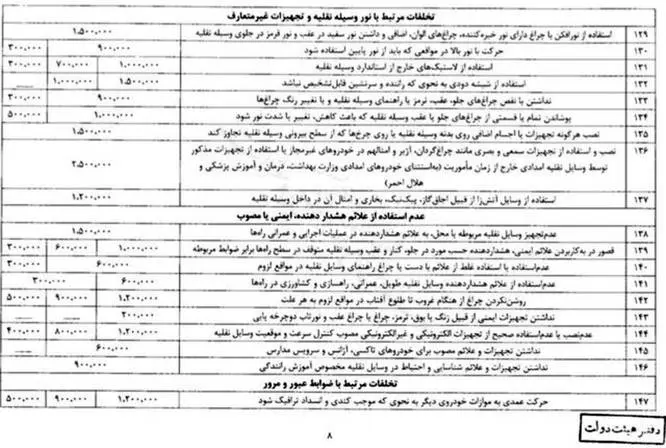 تخلفات مرتبط با نور وسیله نقلیه و تجهیزات غیرمتعارف
۱۲۹ استفاده از نورافکن یا چراغ دارای نور خیره‌کننده، چراغ‌های الوان، اضافی و داشتن نور سفید در عقب و نور قرمز در جلوی وسیله نقلیه ۱.۵۰۰.۰۰۰
۱۳۰ حرکت با نور بالا در مواقعی که باید از نور پایین استفاده شود ۹۰۰.۰۰۰ ۳۰۰.۰۰۰
۱۳۱ استفاده از لاستیک‌های خارج از استاندارد وسیله نقلیه ۱.۰۰۰.۰۰۰ ۷۰۰.۰۰۰ ۳۰۰.۰۰۰
۱۳۲ استفاده از شیشه دودی به نحوی که راننده و سرنشین قابل‌تشخیص نباشد ۱.۵۰۰.۰۰۰ ۱.۰۰۰.۰۰۰ ـــــ
۱۳۳ نداشتن یا نقص چراغ‌های جلو، عقب، ترمز یا راهنمای وسیله نقلیه و یا تغییر رنگ چراغ‌ها ۹۰۰.۰۰۰ ۳۰۰.۰۰۰
۱۳۴ پوشاندن تمام یا قسمتی از چراغ‌های جلو یا عقب وسیله نقلیه که باعث کاهش، تغییر یا شدت نور شود ۱.۰۰۰.۰۰۰ ۵۰۰.۰۰۰
۱۳۵ نصب هرگونه تجهیزات یا اجسام اضافی روی بدنه وسیله نقلیه یا روی چرخ‌ها که از سطح بیرونی وسیله نقلیه تجاوز کند ۱.۵۰۰.۰۰۰
۱۳۶ نصب و استفاده از تجهیزات سمعی و بصری مانند چراغ‌گردان، آژیر و امثالهم در خودروهای غیرمجاز یا استفاده از تجهیزات مذکور
توسط وسایل نقلیه امدادی خارج از زمان مأموریت (به‌استثنای خودروهای امدادی وزارت بهداشت، درمان و آموزش پزشکی و ۲.۵۰۰.۰۰۰
هلال احمر)
۱۳۷ استفاده از وسایل آتش‌زا از قبیل اجاق‌گاز، پیک‌نیک، بخاری و امثال آن در داخل وسیله نقلیه ۱.۲۰۰.۰۰۰
عدم استفاده از علائم هشدار دهنده، ایمنی یا مصوب
۱۳۸ عدم‌تجهیز وسایل نقلیه مربوطه یا محل، به علائم هشداردهنده در عملیات اجرایی و عمرانی راه‌ها ۱.۵۰۰.۰۰۰
۱۳۹ قصور در به‌کاربردن علائم ایمنی، هشداردهنده حسب مورد در جلو، کنار و عقب وسیله نقلیه متوقف در سطح راه‌ها برابر ضوابط مربوطه ۱.۰۰۰.۰۰۰ ۶۰۰.۰۰۰ ۳۰۰.۰۰۰
۱۴۰ عدم‌استفاده یا استفاده غلط از علائم با دست یا چراغ راهنمای وسایل نقلیه در مواقع لزوم ۶۰۰.۰۰۰ ۳۰۰.۰۰۰
۱۴۱ عدم‌استفاده از علائم هشداردهنده وسایل نقلیه طویل، عمرانی، راهسازی و کشاورزی در راه‌ها ۶۰۰.۰۰۰ ۳۰۰.۰۰۰
۱۴۲ روشن‌نکردن چراغ از هنگام غروب تا طلوع آفتاب در مواقع لزوم به هر علت ۱.۲۰۰.۰۰۰ ۹۰۰.۰۰۰ ۵۰۰.۰۰۰
۱۴۳ نداشتن تجهیزات ایمنی از قبیل زنگ یا بوق، ترمز، چراغ یا چراغ عقب و نورتاب دوچرخه پایی ۲۰۰.۰۰۰ ـــــ
۱۴۴ عدم‌نصب یا عدم‌استفاده صحیح از تجهیزات الکترونیکی و غیرالکترونیکی مصوب کنترل سرعت و موقعیت وسایل نقلیه ۱.۲۰۰.۰۰۰ ۸۰۰.۰۰۰ ۴۰۰.۰۰۰
۱۴۵ نداشتن تجهیزات و علائم مصوب برای خودروهای تاکسی، آژانس و سرویس مدارس ۶۰۰.۰۰۰ ـــــ
۱۴۶ نداشتن تجهیزات و علائم شناسایی و احتیاط در وسایل نقلیه مخصوص آموزش رانندگی ۹۰۰.۰۰۰
تخلفات مرتبط با ضوابط عبور و مرور
۱۴۷ حرکت عمدی به موازات خودروی دیگر به نحوی که موجب کندی و انسداد ترافیک شود ۱.۲۰۰.۰۰۰ ۹۰۰.۰۰۰ ۵۰۰.۰۰۰
۸
دفتر هیئت دولت